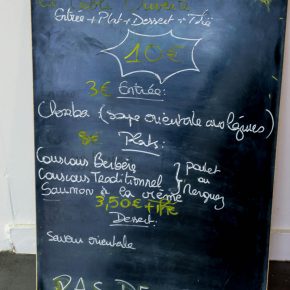 Entrée + Plat + Dessert + Thé
10€
3€ Entrée:
Chorba { soupe orientale aux légumes)
8€ Plats:
Couscous Berbère } poulet
Couscous Traditionnel ou
Saumon à la crème Merguez
3,50€
Dessert:
Saveur orientale
PAS DE